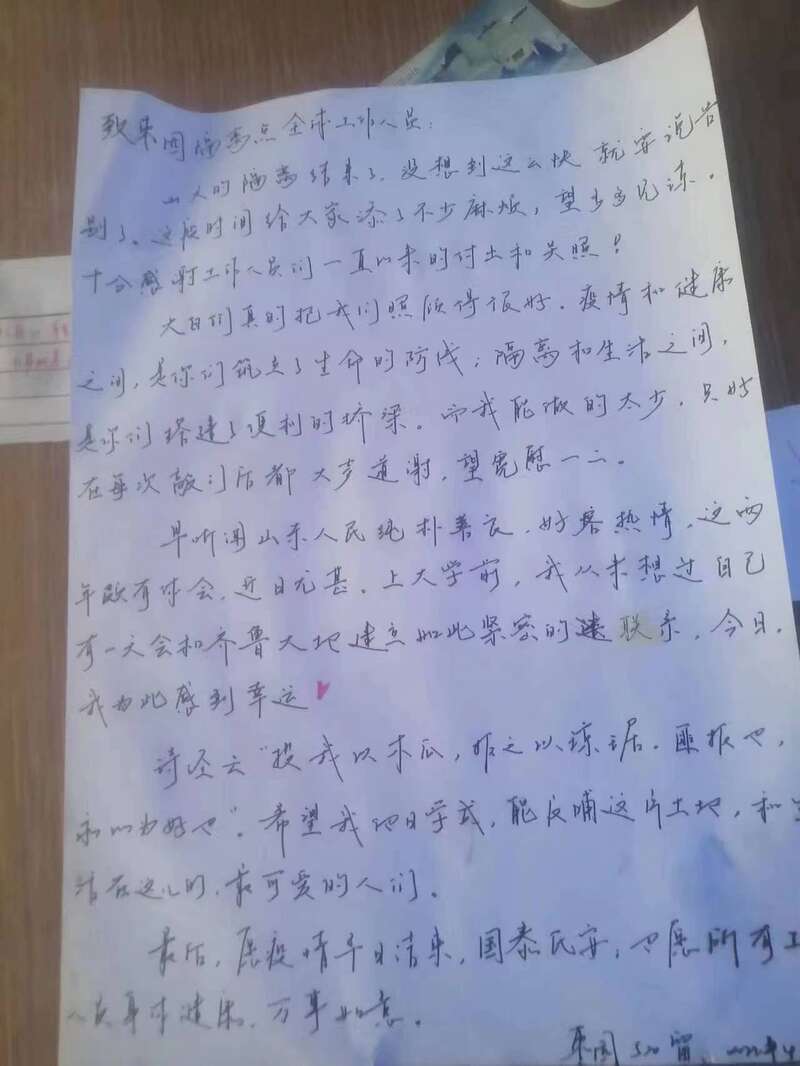 致东园隔离点全体工作人员：
为期的隔离结束了，没想到这么快就要说告
别了。这段时间给大家添了不少麻烦，望多多见谅。
十分感谢工作人员们一直以来的付出和关照！
大白们真的把我们照顾得很好。疫情和健康
之间，是你们筑立了生命的防线；隔离和生活之间，
是你们搭建了便利的桥梁。而我能做的太少，只好
在每次敲门后都大声道谢，望宽慰一二。
早听闻山东人民纯朴善良、好客热情，这两
年颇有体会，近日尤甚。上大学前，我从未想过自己
有一天会和齐鲁大地建立如此紧密的联系，今日，
我为此感到幸运
诗经云“投我以木瓜，报之以琼琚。匪报也，
永以为好也”。希望我他日学成，能反哺这片土地，和生
活在这儿的，最可爱的人们。
最后，愿疫情早日结束，国泰民安，也愿所有工
人员身体健康，万事如意。
东园 520 留